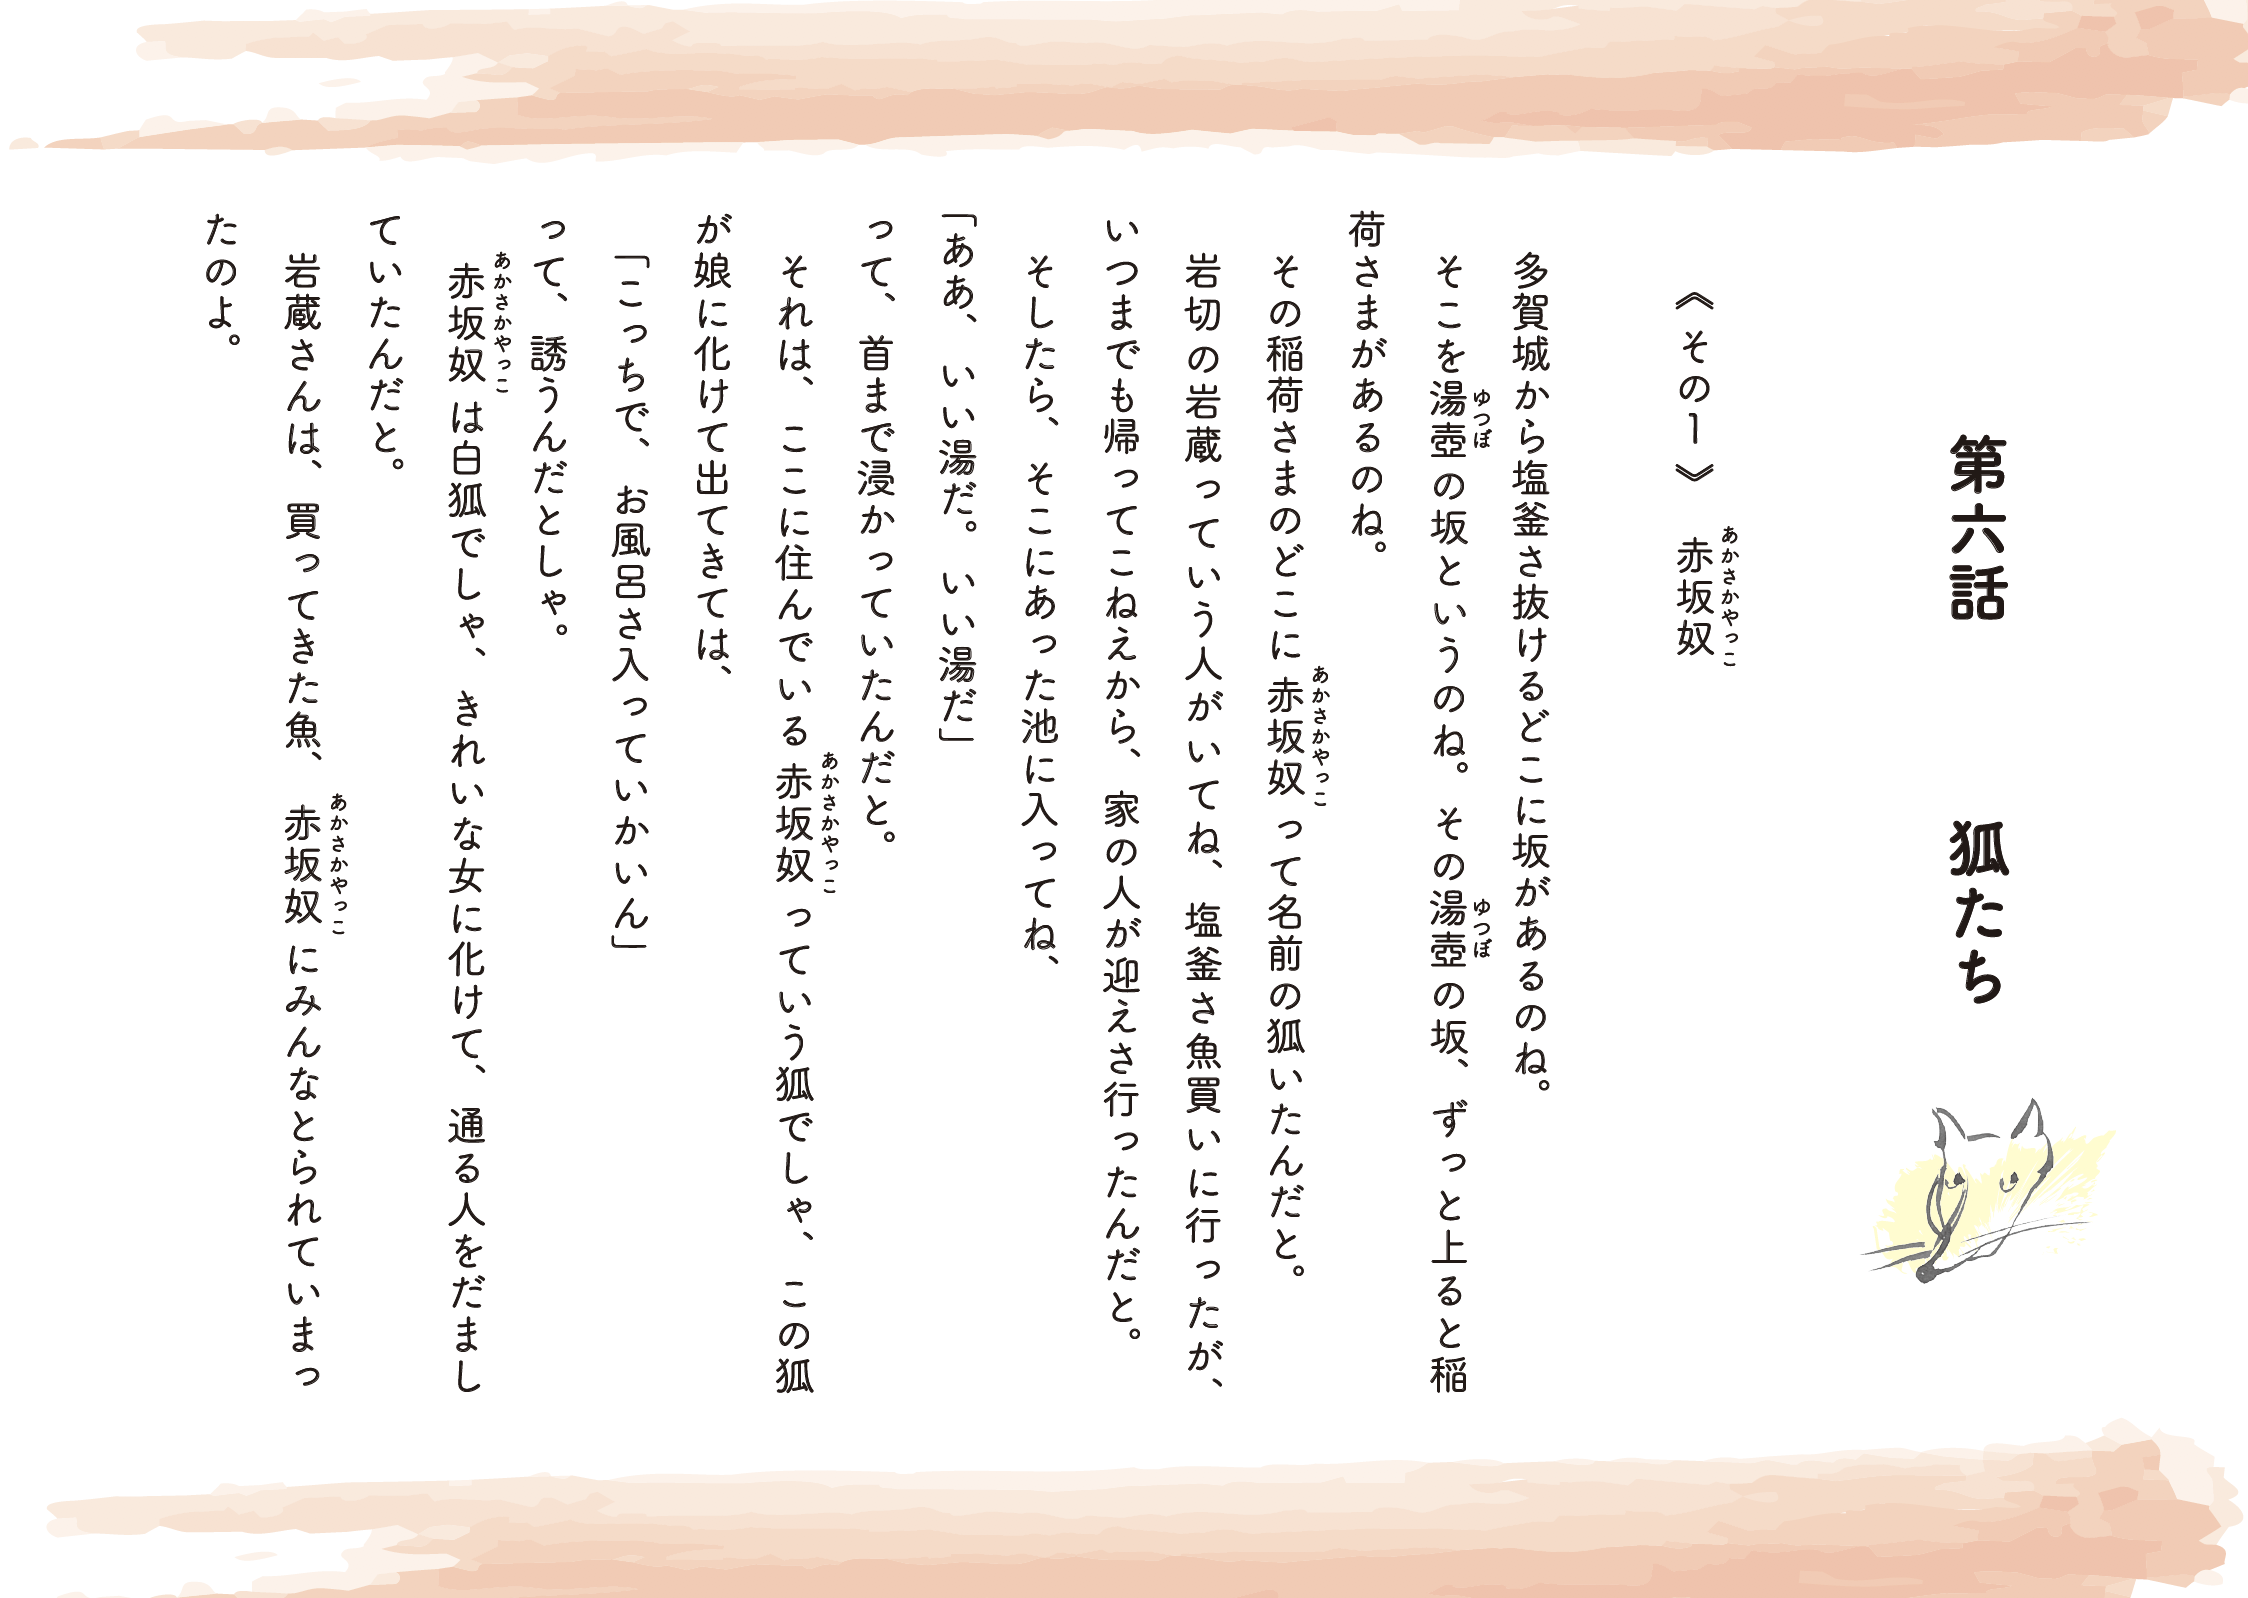 第六話　狐たち
《その1》　赤坂奴
あかさかやっこ
多賀城から塩釜さ抜けるどこに坂があるのね。
そこを湯壺の坂というのね。その湯壺の坂、ずっと上ると稲
ゆつぼ
ゆつぼ
荷さまがあるのね。
その稲荷さまのどこに赤坂奴って名前の狐いたんだと。
あかさかやっこ
岩切の岩蔵っていう人がいてね、塩釜さ魚買いに行ったが、
いつまでも帰ってこねえから、家の人が迎えさ行ったんだと。
そしたら、そこにあった池に入ってね、
「ああ、いい湯だ。いい湯だ」
って、首まで浸かっていたんだと。
それは、ここに住んでいる赤坂奴っていう狐でしゃ、この狐
あかさかやっこ
が娘に化けて出てきては、
「こっちで、お風呂さ入っていかいん」
って、誘うんだとしゃ。
赤坂奴は白狐でしゃ、きれいな女に化けて、通る人をだまし
あかさかやっこ
ていたんだと。
岩蔵さんは、買ってきた魚、赤坂奴にみんなとられていまっ
あかさかやっこ
たのよ。